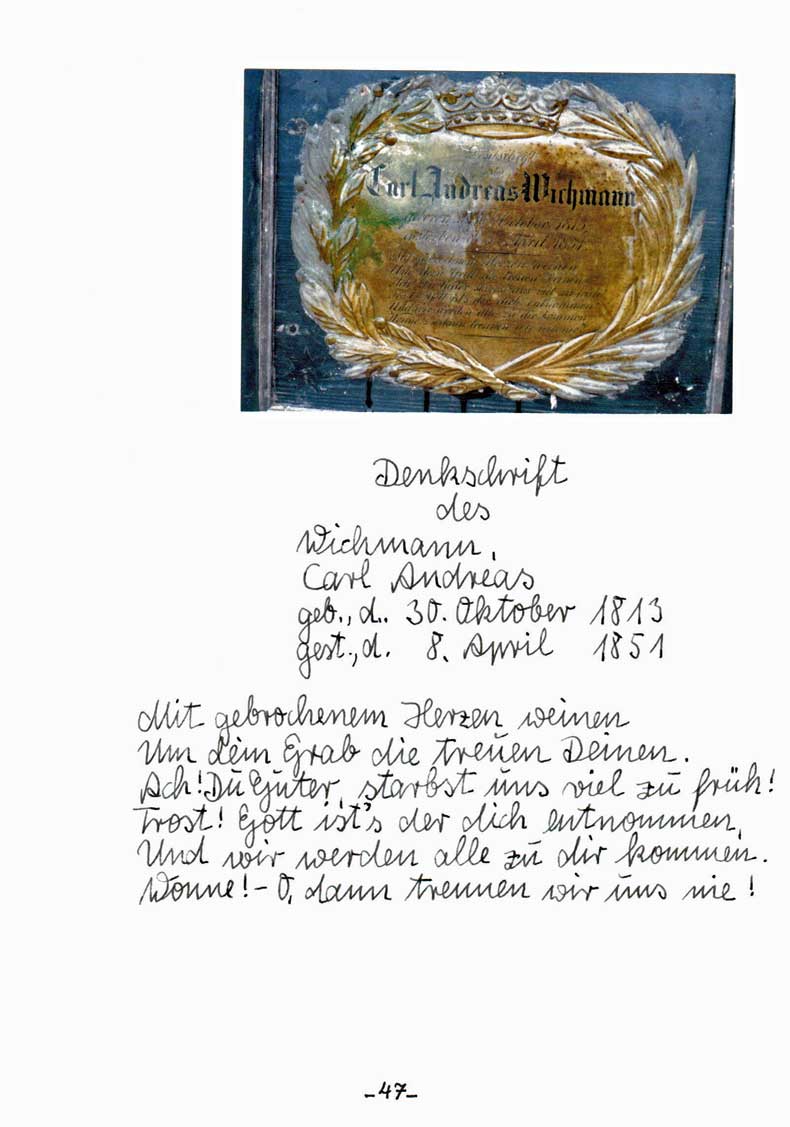 Carl Andreas Wichmann
Denkschrift
des
Wichmann,
Carl Andreas
geb., d. 30. Oktober 1813
gest., d. 8. April 1851
Mit gebrochenem Herzen weinen
Um Dein Grab die treuen Deinen.
Ach! Du Guter, starbst uns viel zu früh!
Trost! Gott ist's der dich entnommen,
Und wir werden alle zu dir kommen.
Wonne! - O, dann trennen wir uns nie!
- 47 -